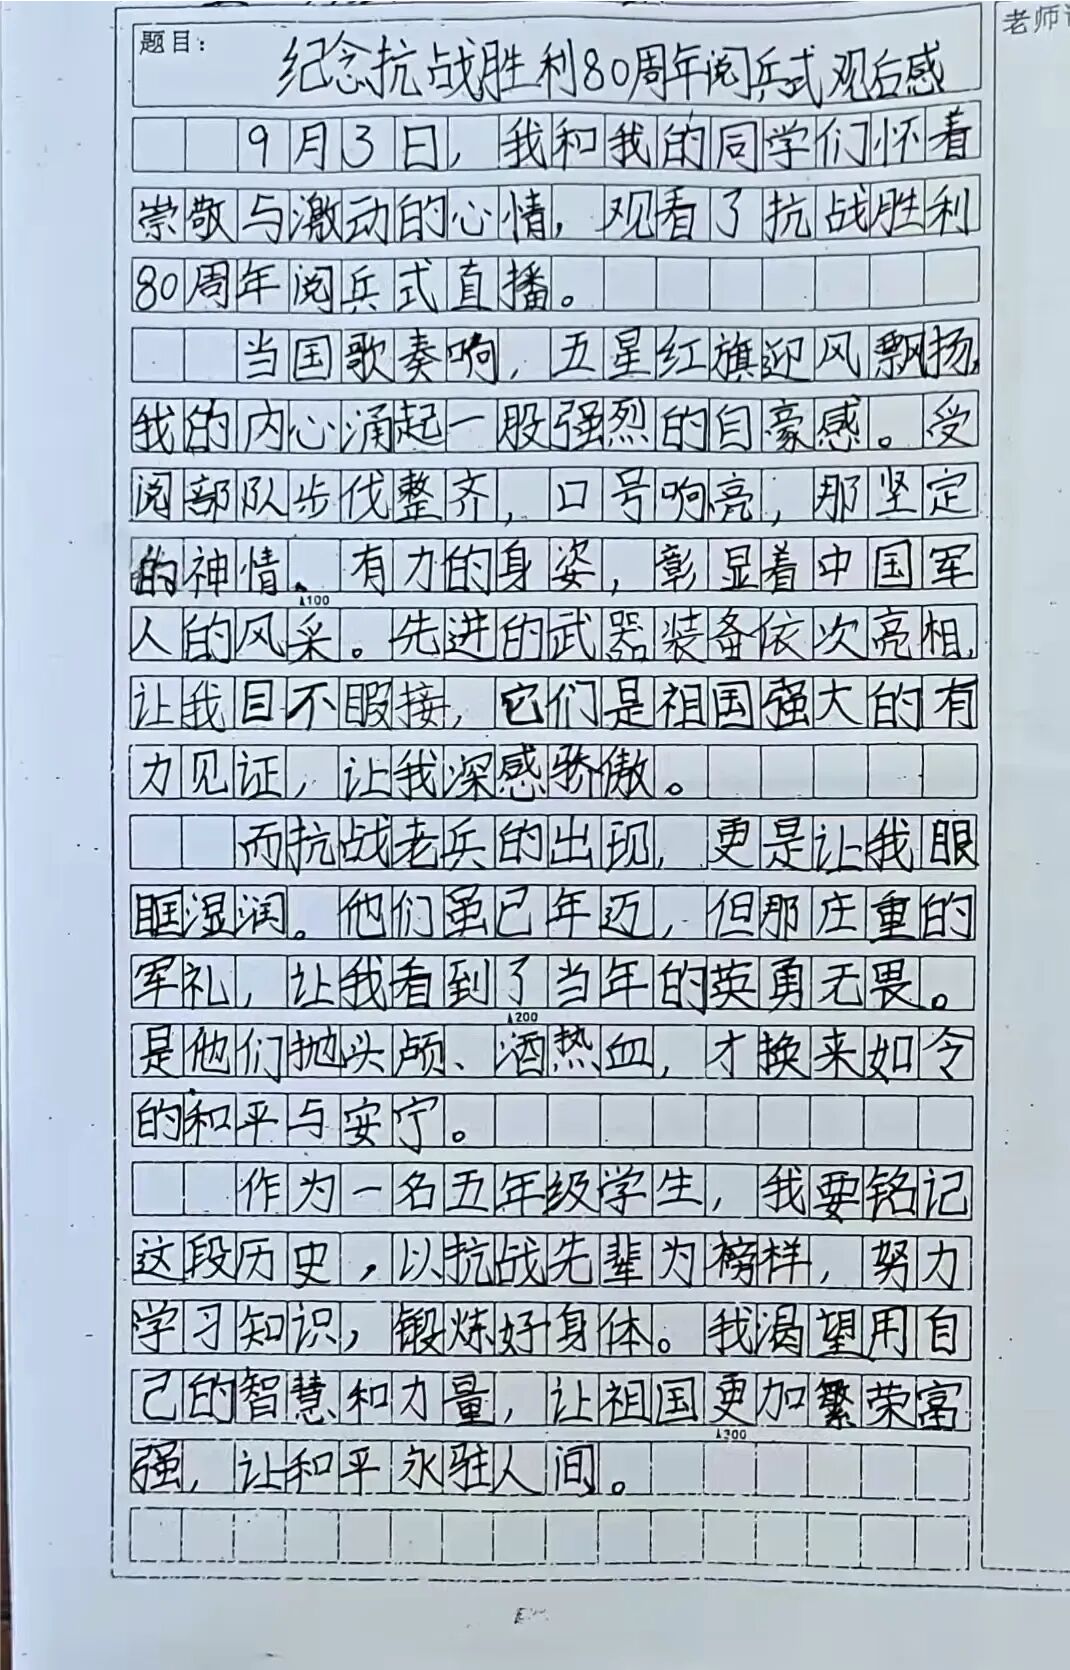 老师
题目：
纪念抗战胜利80周年阅兵式观后感
9月3日，我和我的同学们怀着
崇敬与激动的心情，观看了抗战胜利
80周年阅兵式直播。
当国歌奏响，五星红旗迎风飘扬，
我的内心涌起一股强烈的自豪感。受
阅部队步伐整齐，口号响亮，那坚定
的神情、有力的身姿，彰显着中国军
▲100
人的风采。先进的武器装备依次亮相，
让我目不暇接，它们是祖国强大的有
力见证，让我深感骄傲。
而抗战老兵的出现，更是让我眼
眶湿润。他们虽已年迈，但那庄重的
军礼，让我看到了当年的英勇无畏。
▲200
是他们抛头颅、洒热血，才换来如今
的和平与安宁。
作为一名五年级学生，我要铭记
这段历史，以抗战先辈为榜样，努力
学习知识，锻炼好身体。我渴望用自
己的智慧和力量，让祖国更加繁荣富
▲300
强，让和平永驻人间。